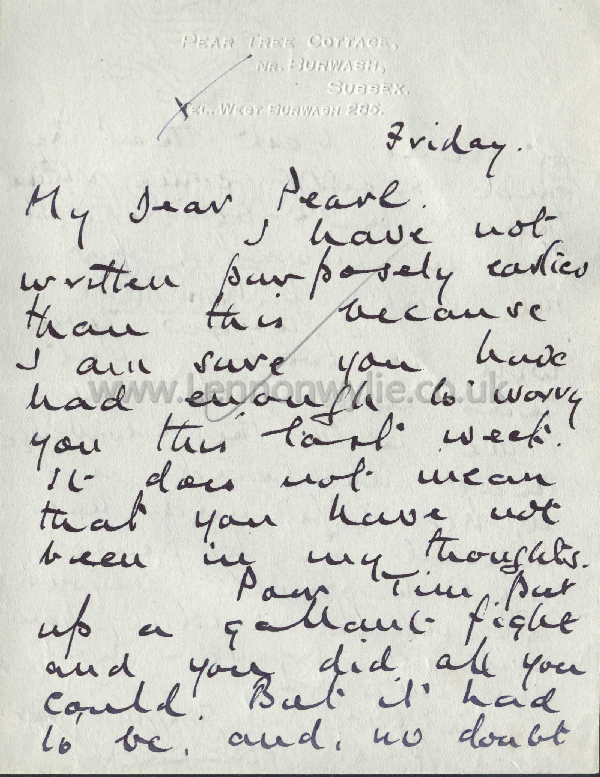 PEAR TREE COTTAGE,
NR. BURWASH,
SUSSEX.
TEL. WEST BURWASH 285.
Friday.
My Dear Pearl.
I have not
written purposely earlier
than this because
I am sure you have
had enough to worry
www.Lennonwylie.co.uk
you this last week.
It does not mean
that you have not
been in my thoughts.
Poor Tim put
up a gallant fight
and you did all you
could. But it had
to be, and, no doubt